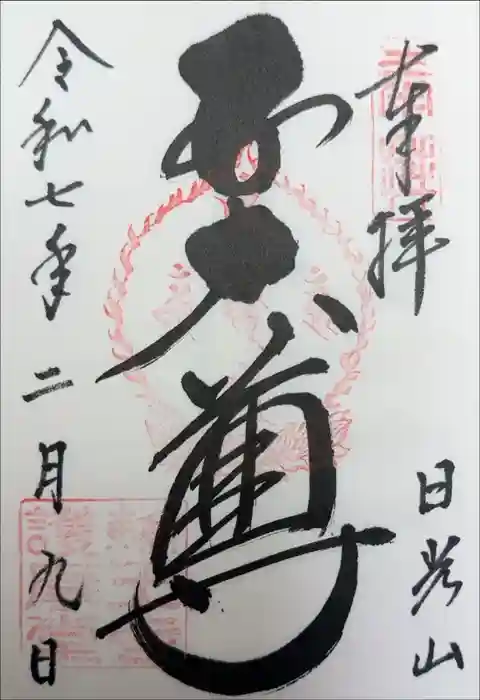 奉拝
日光山
五大尊
令和七年二月九日